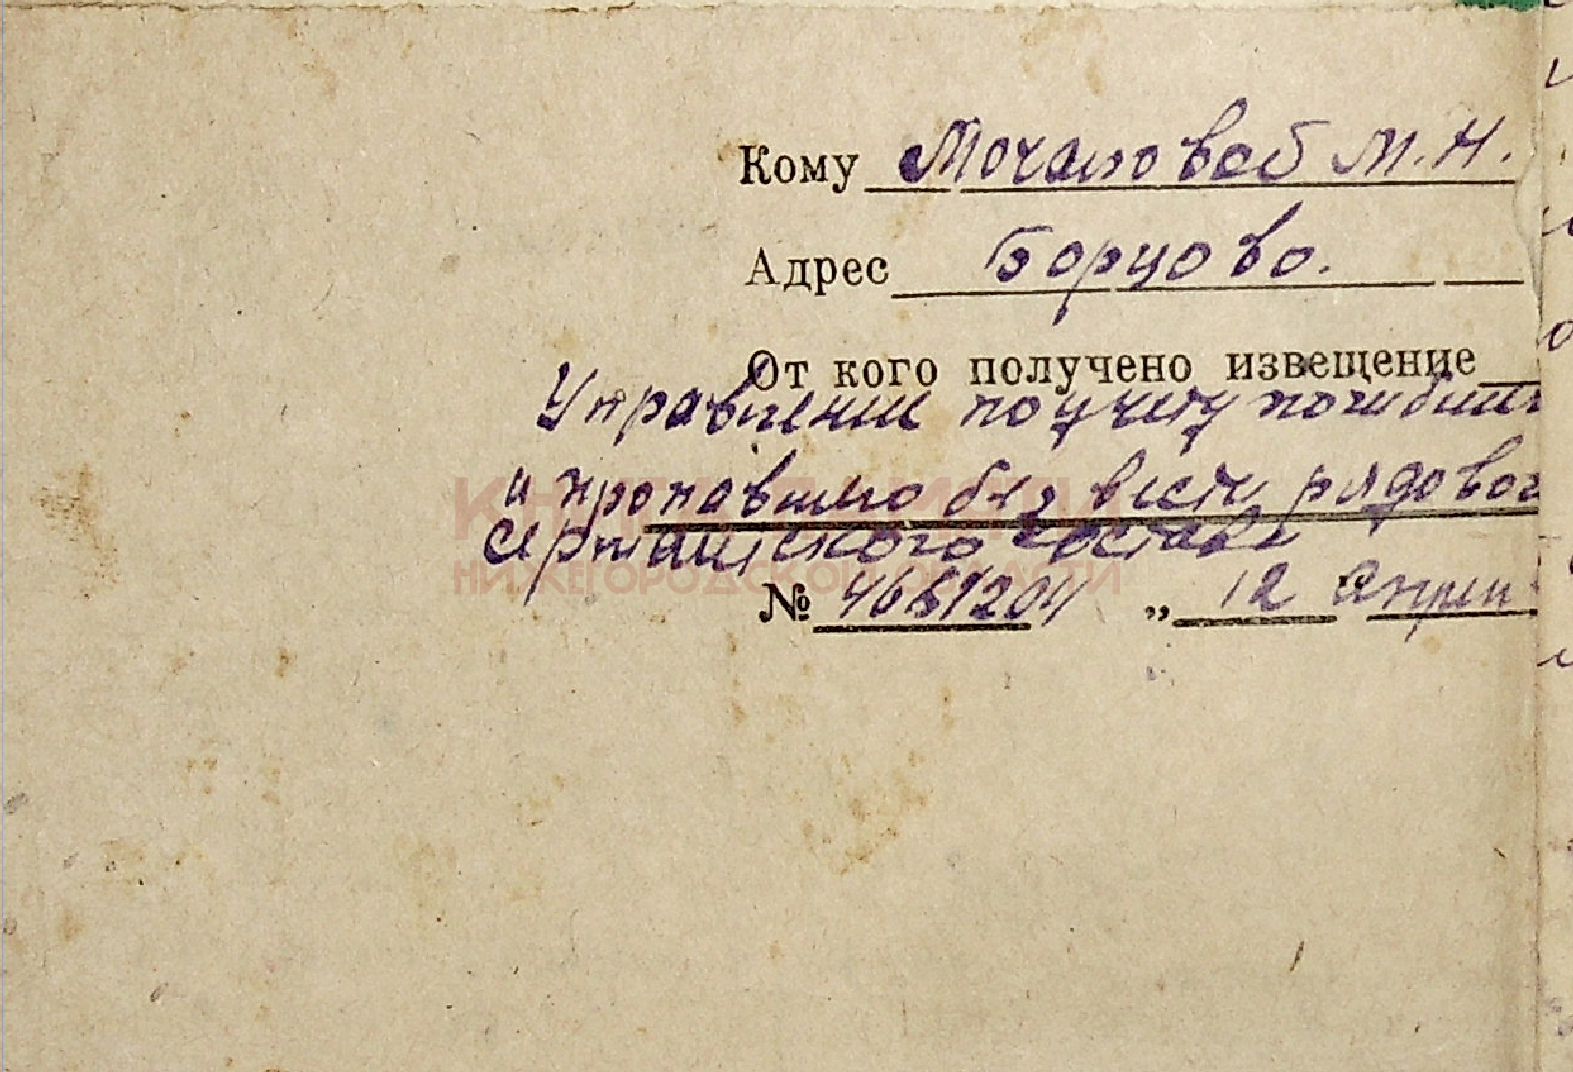 Кому Мочаловой М.Н.
Адрес Борцово.
От кого получено извещение
Управление по учету погибши
и пропавшего без вести рядовог
сержантского состава
№ 4651204 „ 12 апрел
КНИГА ПАМЯТИ
НИЖЕГОРОДСКОЙ ОБЛАСТИ